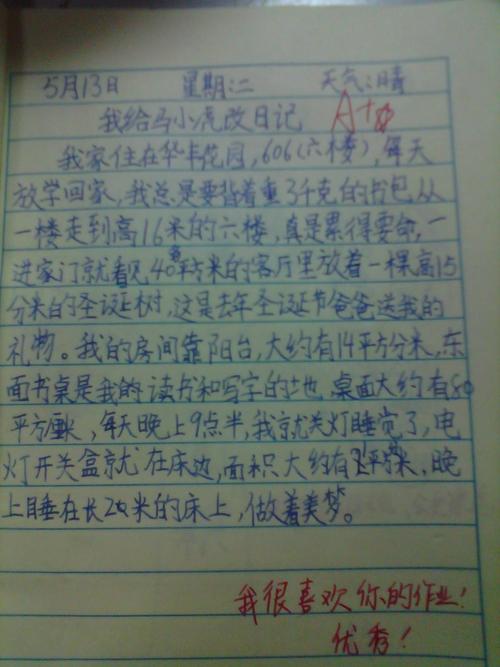 5月13日 星期:二 天气:晴
我给马小虎改日记 A+
我家住在华丰花园,606(六楼),每天
放学回家,我总是要背着重3千克的书包从
一楼走到高16米的六楼,真是累得要命,一
进家门就看见40平方米的客厅里放着一棵高15
分米的圣诞树,这是去年圣诞节爸爸送我的
礼物。我的房间靠阳台,大约有14平方分米,东
面书桌是我的读书和写字的地,桌面大约有80
平方厘米,每天晚上9点半,我就关灯睡觉了,电
灯开关盒就在床边,面积大约有平方米,晚
上睡在长2米的床上,做着美梦。
我很喜欢你的作业!
优秀!